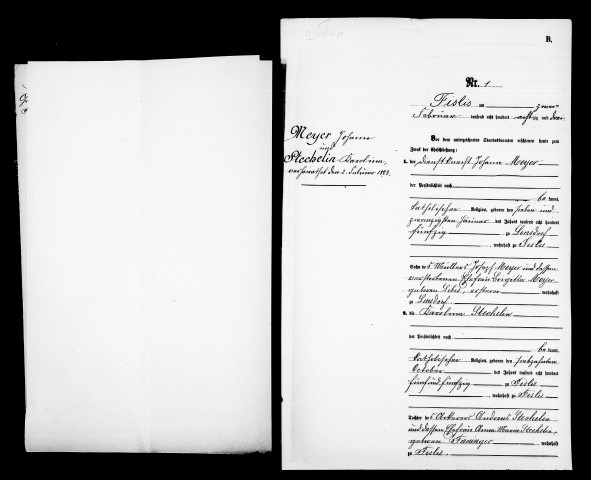 B.
Nr. 1
Meyer Johann
und
Stechelin Karolina,
verheirathet den 2. Februar 1883.
Fislis am zwei
Februar tausend acht hundert achtzig und drei
Vor dem unterzeichneten Standesbeamten erschienen heute zum
Zweck der Eheschließung:
1. der Dienstknecht Johann Meyer
der Persönlichkeit nach
be kannt,
katholischer Religion, geboren den sieben und
zwanzigsten Januar des Jahres tausend acht hundert
fünfzig zu Linsdorf
, wohnhaft zu Fislis
Sohn des Müllers Josef Meyer und dessen
verstorbenen Ehefrau Meyer
geborenen wohnhaft
zu Linsdorf
2. die Karolina Stechelin
der Persönlichkeit nach
be kannt,
katholischer Religion, geboren den siebzehnten
October des Jahres tausend acht hundert
fünf und fünfzig zu Fislis
, wohnhaft zu Fislis
Tochter des Ackerers Andreas Stechelin
und dessen Ehefrau Anna Maria Stechelin,
geborenen wohnhaft
zu Fislis.